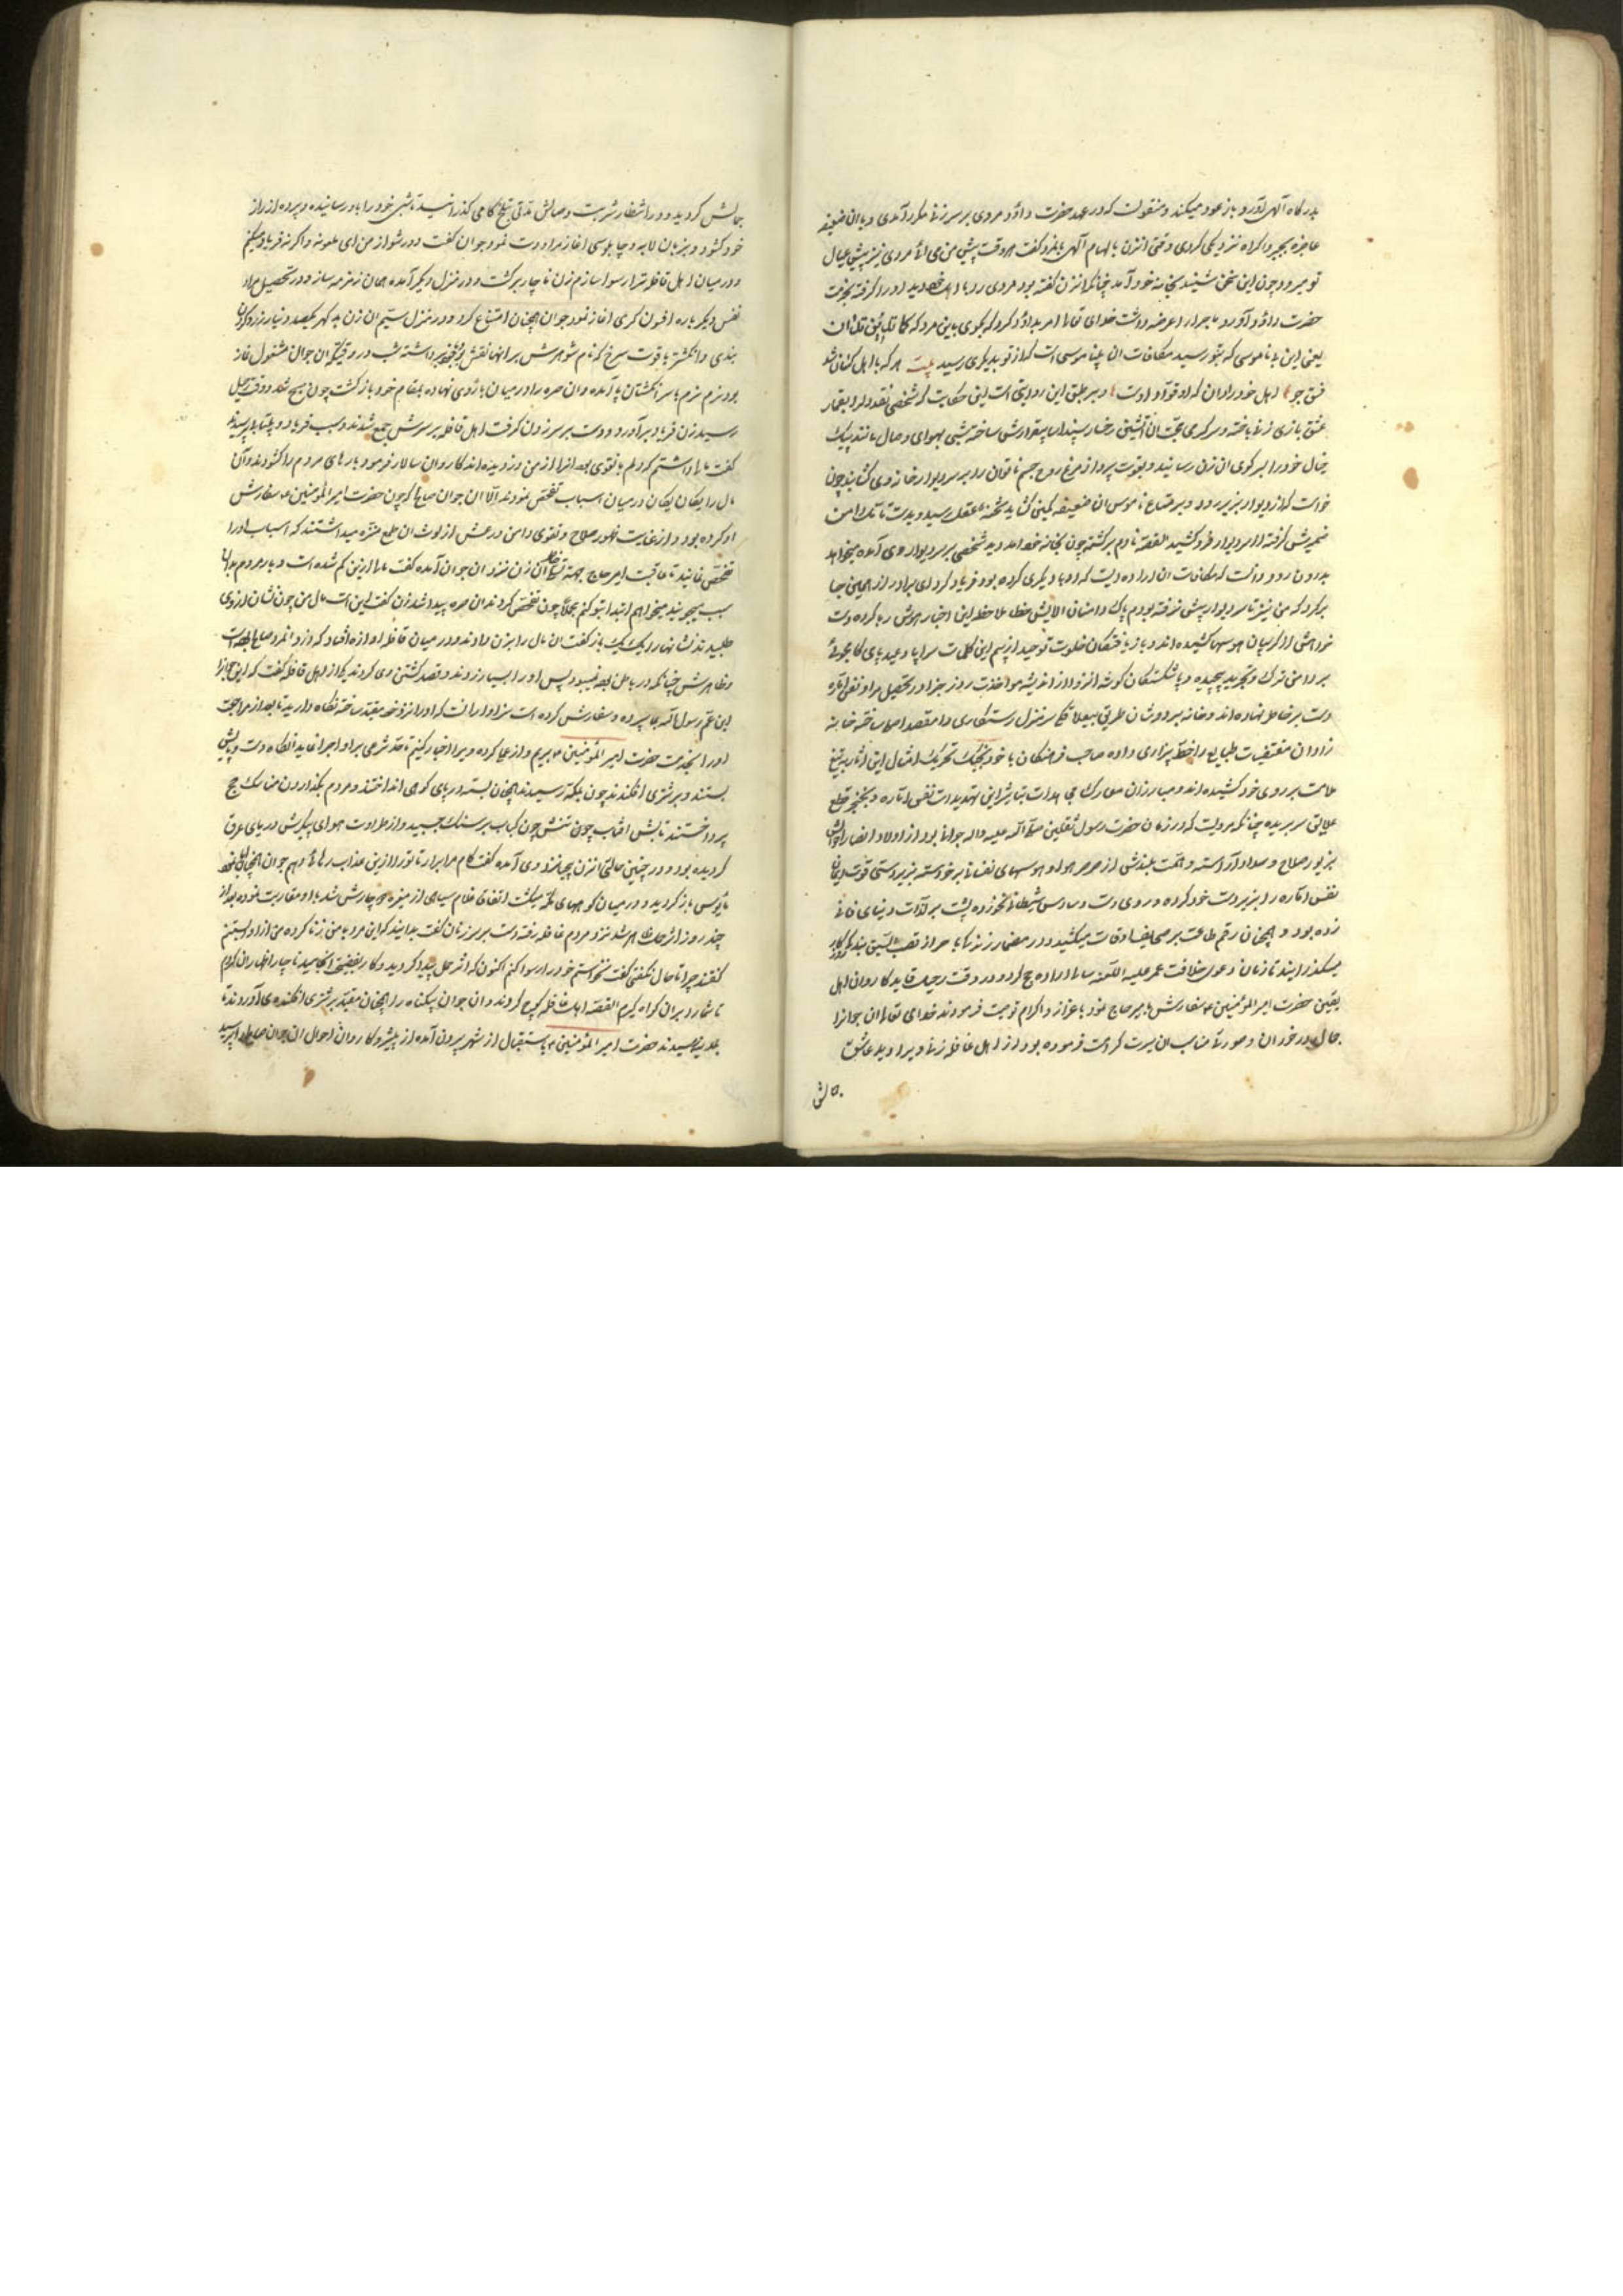 بدرگاه آلهی آورد و باز عود میکند و منقولست که در عهد حضرت داؤد مردی بر سر زنی مکرر آمدی و با آن ضعیفه
عاجزه بجبر و اکراه نزدیکی کردی وقتی آنزن بالهام آلهی بآنمرد گفت هر وقت پیش من می آئی مردی نیز پیش عیال
تو میرود چون این سخن شنید بخانه خود آمد چنانکه آنزن گفته بود مردی را با اهل خود دید او را گرفته بخدمت
حضرت داؤد آورد و ماجرا را عرضه داشت خدای تعالی امر بداؤد کرد که بگوی باین مرد که کما تدین تدان
یعنی این بی ناموسی که بتو رسید مکافات آن بی ناموسی است که از تو بدیگری رسید بیت هر که با اهل کسان شد
فسق جو اهل خود را دان که او قواد اوست و بر طبق این روایتی است این حکایت که شخصی نقد دل را بقمار
عشق بازی زنی باخته و سرگرمی محبت آن آتشین رخسار سپند آسا بیقرارش ساخته شبی بهوای وصال مانند پیک
خیال خود را بسر کوی آن زن رسانید و بقوت پرواز مرغ روح جسم ناتوان را بر سر دیوار خانه وی کشانید چون
خواست که از دیوار بزیر رود و بر متاع ناموس آن ضعیفه کمین گشاید شحنه عقل رسید و بدست تأمل دامن
ضمیرش گرفته از سر دیوار فرو کشید القصه نادم برگشته چون بخانه خود آمد دید شخصی بر سر دیوار وی آمده میخواهد
بدرون رود دانست که مکافات آن اراده ایست که او با دیگری کرده بود فریاد کرد ای برادر از همین جا
برگرد که من نیز تا سر دیوار بیش نرفته بودم پاک دامنان الایش خطا ملاحظه این اخبار هوش ربا کرده دست
خواهش از گریبان هوسها کشیده اند و باز یافتگان خلوت توحید از بیم این کلمات سراپا وعید پای کامجوئی
بر دامن ترک و تجرید پیچیده و پا شکستگان گوشه انزوا از اندیشه مواخذت روز جزا در تحصیل مراد نفس اماره
دست بر خاطر نهاده اند و خانه بر دوشان طریق بیعلاقگی سر منزل رستگاری را مقصد اصلی ساخته خانه
زادان مقتضیات طبایع را خط بیزاری داده صاحب فرهنگان با خود بجنگ تحریک امثال این آثار تیغ
ملامت بر روی خود کشیده اند و مبارزان معارک مجاهدات بتاثیر این تهدیدات نفس اماره را بخنجر قطع
علایق سر بریده چنانکه مرویست که در زمان حضرت رسول ثقلین صلی الله علیه و اله جوانی بود از اولاد انصار
بزیور صلاح و سداد آراسته و همت بلندش از سر هوا و هوسهای نفسانی برخواسته بزبردستی قوت ایمان
نفس اماره را زیر دست خود کرده و روی دست وساوس شیطانی نخورده پشت بر لذات دنیای فانی
زده بود و همچنان رقم طاعت بر صحایف اوقات میکشید و در مضمار زندگانی
میگذرانید تا زمان دعوی خلافت عمر علیه اللعنه سالی اراده حج کرد و در وقت رحیل قاید کاروان اهل
یقین حضرت امیر المؤمنین ع سفارشش بامیر حاج نمود باعزاز و اکرام توصیت فرمودند خدای تعالی آن جوانرا
جمالی در خور آن و صورتی مناسب ان سیرت کرامت فرموده بود از اهل قافله زنی ویرا دید عاشق
جمالش گردید و در انتظار شربت وصالش مدتی بتلخ کامی گذرانید تا شبی خود را باو رسانیده و پرده از راز
خود گشود و بزبان لابه و چابلوسی آغاز مراودت نمود جوان گفت دور شو از من ای ملعونه و اگر نه فریاد میکنم
و در میان اهل قافله ترا رسوا سازم زن ناچار برگشت و در منزل دیگر آمده همان زمزمه ساز و در تحصیل مراد
نفس دیگر باره افسون گری آغاز نمود جوان همچنان امتناع کرد و در منزل سیم آن زن بدگهر یکصد دینار زر و گردن
بندی و انگشتر یاقوت سرخ که نام شوهرش بر آنها نقش بود برداشته شب در وقتیکه آن جوان مشغول نماز
بود نرم نرم با سر انگشتان پا آمده و آن صره را در میان بازوی نهاده بمقام خود بازگشت چون صبح شد و وقت رحیل
رسید زن فریاد برآورد و دست بر سر زدن گرفت اهل قافله بر سرش جمع شدند و سبب فریاد و بیتابیش پرسیدند
گفت مالی داشتم که دلم باو قوی بود آنرا از من دزدیده اند کاروان سالار فرمود بارهای مردم را گشودند و آن
مال را یکان یکان در میان اسباب تفحص نمودند الا آن جوان صالح که چون حضرت امیر المؤمنین ع سفارش
او کرده بود و از غایت ظهور صلاح و تقوی دامن ورعش از لوث آن طمع منزه میداشتند که اسباب او را
تفحص نمایند تا عاقبت امیر حاج بجهة تسلی خاطر آن زن نزد آن جوان آمده گفت مالی از این زن گم شده است و بار مردم بدان
سبب میجویند میخواهم ابتدا بتو کنم بعد چون تفحص کردند آن صره پیدا شد زن گفت این است مال من چون نشان از وی
طلبیدند نشانها را یک یک بازگفت آن مال را بزن دادند و در میان قافله آوازه افتاد که دزد آنمرد صالح بوده است
و ظاهرش چنانکه در باطن بود نبود پس او را بسیار زدند و قصد کشتن وی کردند یکی از اهل قافله گفت که این جوانرا
ابن عم رسول الله بما سپرده و سفارش کرده است سزاوار آنست که او را نزد خود مقید ساخته نگاه دارید تا بعد از مراجعت
او را بخدمت حضرت امیر المؤمنین ع بریم و از ماجرا ویرا اخبار کنیم تا حد شرعی بر او اجرا نماید آنگاه دست و پایش
بستند و بر شتری افکندند چون بمکه رسیدند همچنان بسته در پای کوهی انداختند و مردم بگذاردن مناسک حج
پرداختند تابش آفتاب چون تنش چون کباب بر سنگ چسپید و از حرارت هوای پیکرش دریای عرق
گردیده بود و در چنین حالتی آنزن بیحیا نزد وی آمده گفت کام مرا برآر تا تو را از این عذاب رهائی دهم جوان
مأیوس باز گردید و در میان کوههای مکه میگشت اتفاقا غلام سیاهی دچارش شد با او مقاربت نموده بعد از
چند روز اثر حمل ظاهر شد نزد مردم قافله رفته دست بر سر زنان گفت بدانید که این مرد با من زنا کرده من از او آبستنم
گفتند چرا تا حال نگفتی گفت نخواستم خود را رسوا کنم اکنون که اثر حمل پیدا گردید و کار بفضیحتی انجامید ناچار اظهار آن کردم
تا شما را بر آن گواه گیرم القصه اهل قافله کوچ کردند و ان جوان بیگناه را همچنان مقید بر شتری افکنده می آوردند تا
بمدینه رسیدند حضرت امیر المؤمنین ع باستقبال از شهر بیرون آمده از پیشرو کاروان احوال آن جوان صالح را پرسید